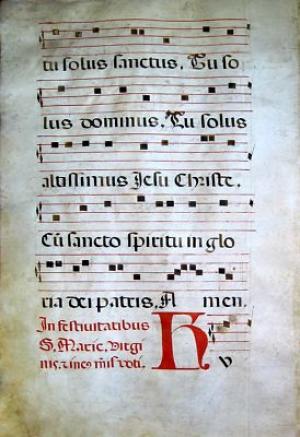 tu solus sanctus. Tu so
lus dominus. Tu solus
altissimus Jesu Christe.
Cũ sancto spiritu in glo
ria dei patris. A men.
In festivitatibus
S. Marie. Virgi
nis. K
v